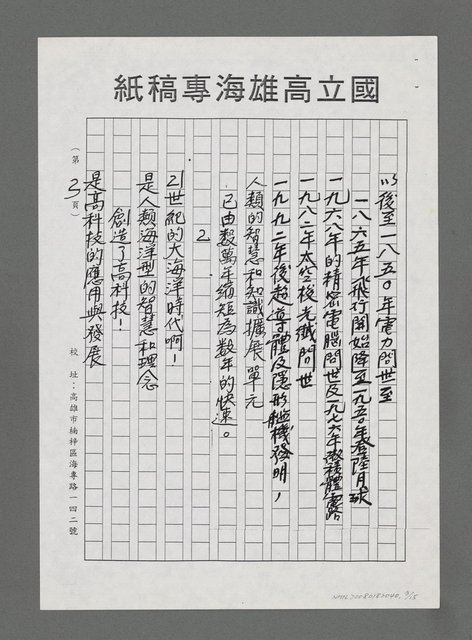 國立高雄海專稿紙
以後至一八五○年電力問世至
一八六五年飛行開始降至一九五○年登陸月球
一九六八年的精密電腦問世及一九七六年微積體電路
一九八二年太空梭光纖問世
一九九二年後超導體及隱形艦機發明，
人類的智慧和知識擴展單元
已由數萬年縮短為數年的快速。
2
21世紀的大海洋時代啊！
是人類海洋型的智慧和理念
創造了高科技！
是高科技的應用與發展
（第3頁）
校址：高雄市楠梓區海專路一四二號
NMTL20080180040, 3/15